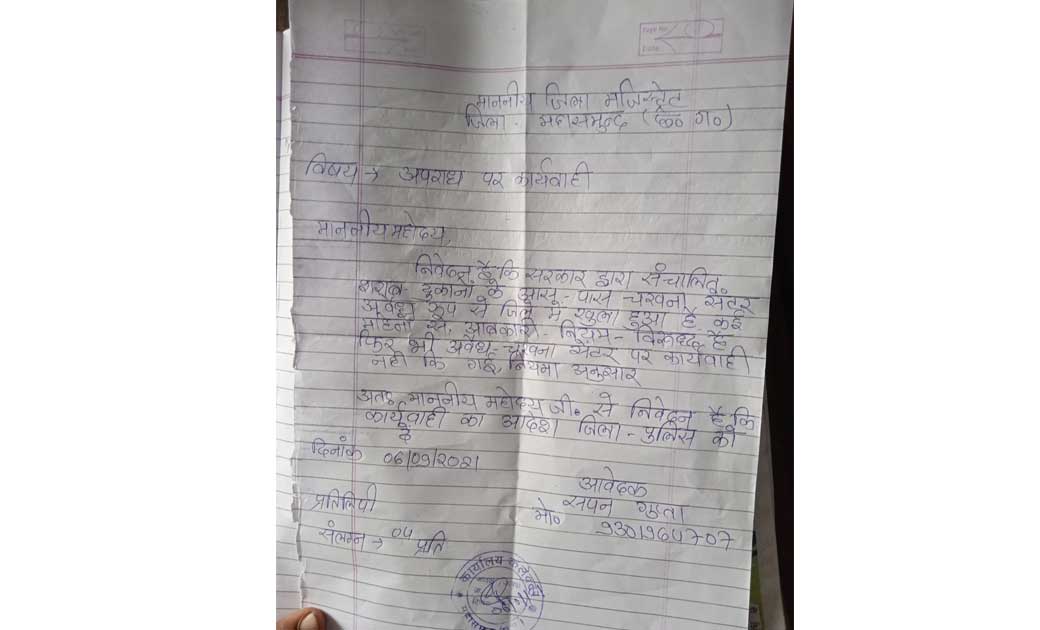 Page No.
Date
माननीय जिला मजिस्ट्रेट
जिला - महासमुन्द (छ० ग०)
विषय → अपराध पर कार्यवाही
माननीय महोदय,
निवेदन है कि सरकार द्वारा संचालित
शराब दुकानों के आस - पास चखना सेंटर
अवैध रूप से जिले में खुला हुआ है कई
महिनों से, आबकारी - नियम - विरूध्द है
फिर भी अवैध - चखना सेंटर पर कार्यवाही
नही कि गई, नियमा अनुसार
अतः माननीय महोदय जी० से निवेदन है कि
कार्यवाही का आदेश जिला - पुलिस को
दे
दिनांक 06/09/2021
आवेदक
प्रतिलिपी
सपन गुप्ता
मो० 9301964707
संलग्न → 04 प्रति
कार्यालय कलेक्टर